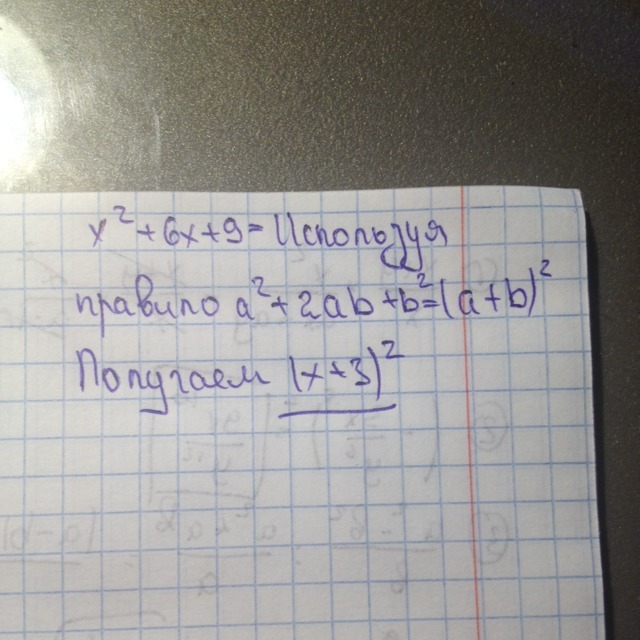 x²+6x+9= Используя
правило a²+2ab+b²=(a+b)²
Получаем (x+3)²